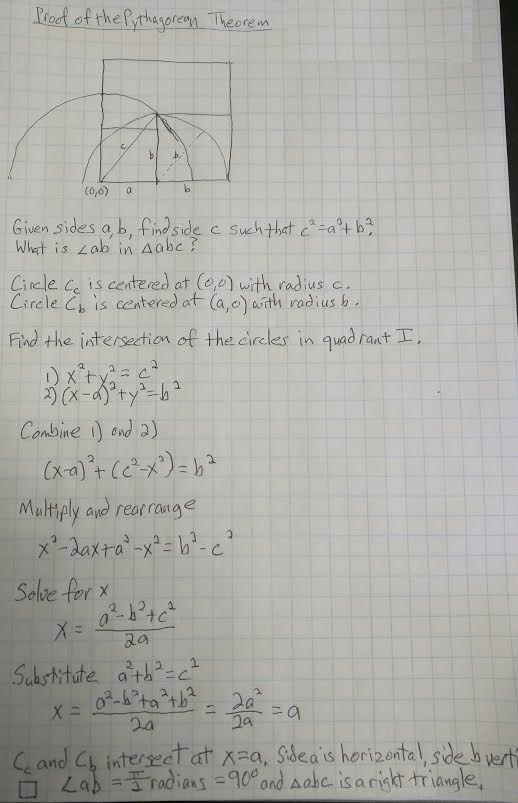 Proof of the Pythagorean Theorem
c
b
b
(0,0) a b
Given sides a, b, find side c such that c²=a²+b².
What is ∠ab in △abc?
Circle C_c is centered at (0,0) with radius c.
Circle C_b is centered at (a,0) with radius b.
Find the intersection of the circles in quadrant I.
1) x²+y²=c²
2) (x-a)²+y²=b²
Combine 1) and 2)
(x-a)²+(c²-x²)=b²
Multiply and rearrange
x²-2ax+a²-x²=b²-c²
Solve for x
x = (a²-b²+c²)/2a
Substitute a²+b²=c²
x = (a²-b²+a²+b²)/2a = 2a²/2a = a
C_c and C_b intersect at x=a. Side a is horizontal, side b verti
□ ∠ab = π/2 radians = 90° and △abc is a right triangle.